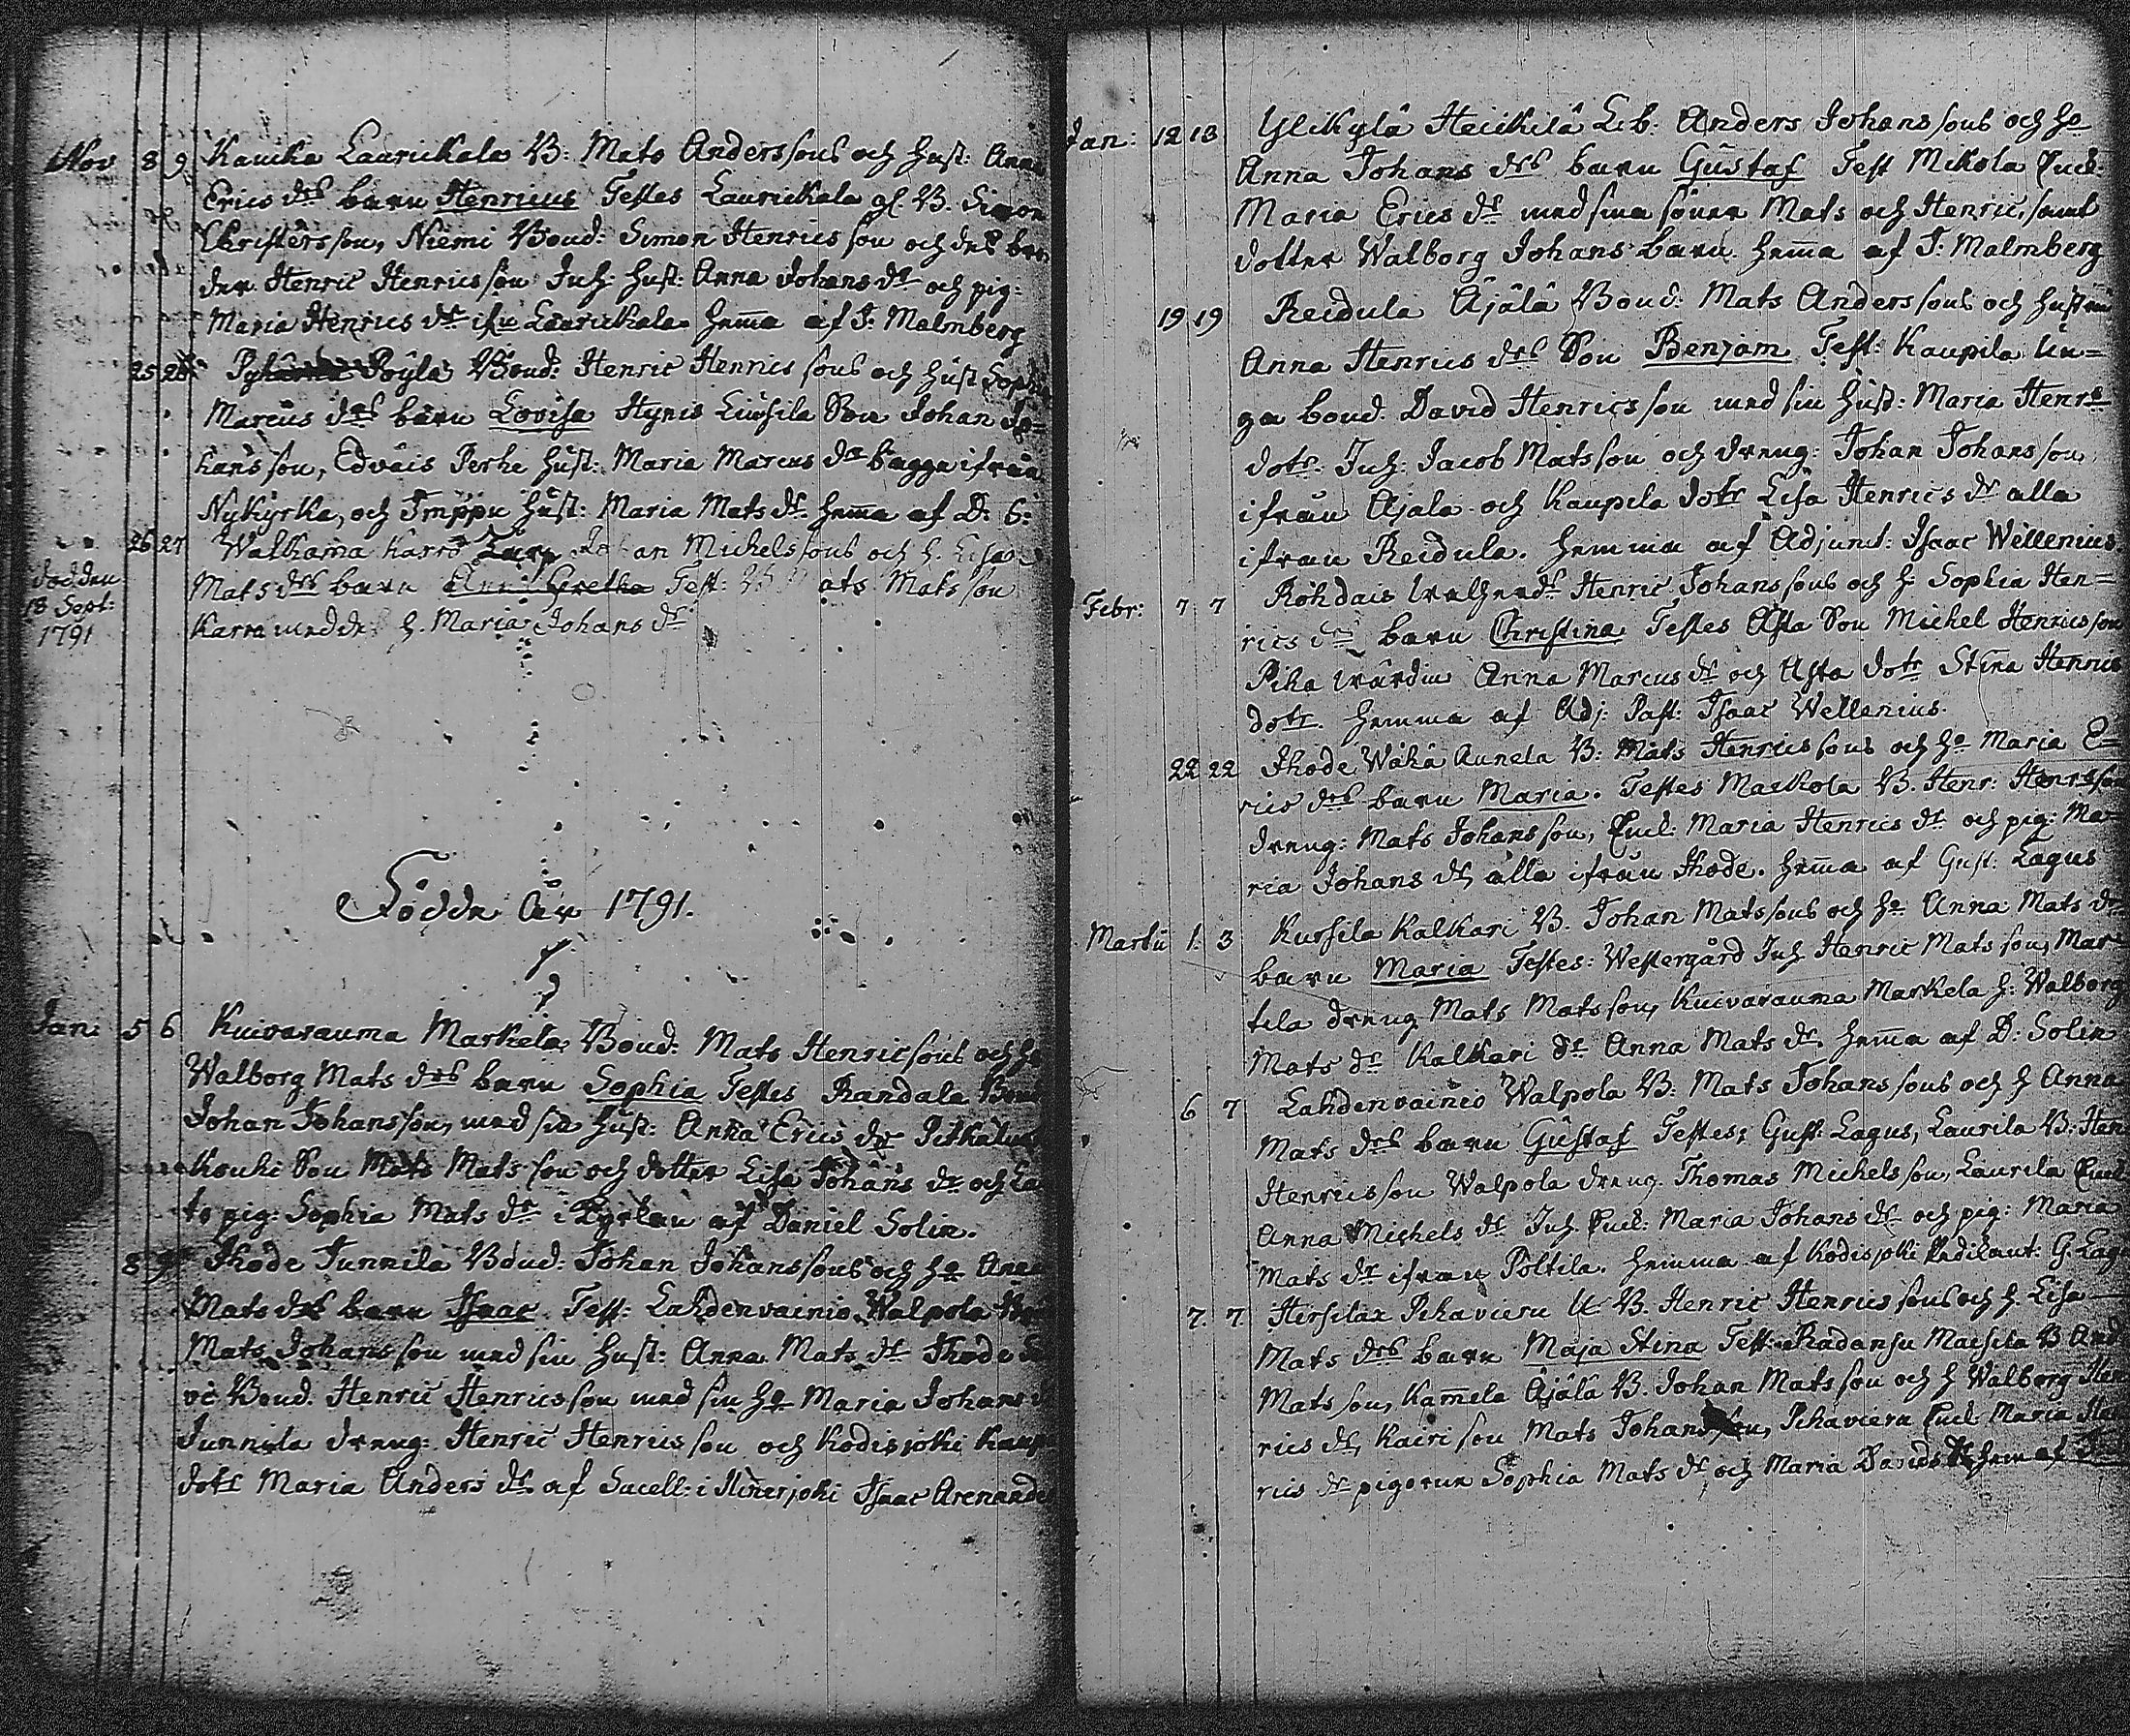 Nov 8 9 Kauika Laurickala B: Mats Anderssons och hust: Anna
Erics drs barn Henricus Testes Laurickala gl. B. Simon
Christersson, Niemi Bond: Simon Henricsson och des bro
der Henric Henricsson Inh: hust: Anna Johans dr och pig:
Maria Henrics dr ifrn Laurickala hema af J: Malmberg
25 26 Pöylä Bond: Henric Henrics sons och hust Sophia
Marcus drs barn Lovisa Hynis Lursila Son Johan Jo=
hansson, Edväis Perhe hust: Maria Marcus dr bagge ifrån
Nykyrka, och Tmppu hust: Maria Mats dr hema af D: S:
26 27 Walkama Karro Johan Michelssons och h. Lisa
Mats drs barn Ann Gretha Test: Mats Matsson
Karra med des h. Maria Johans dr
död den
18 Sept:
1791
Födde åhr 1791.
Jan: 5 6 Kuivarauma Markela Bond: Mats Henricsons och ho
Walborg Mats drs barn Sophia Testes Randala Bond
Johan Johansson, med sin hust: Anna Erics dr
Kouhi Son Mats Matsson och dotter Lisa Johans dr och La
to pig: Sophia Mats dr i Kyrkan af Daniel Solin.
8 9 Ihode Junnila Bond: Johan Johanssons och ho Anna
Mats drs barn Isaac Test: Lahdenvainio Walpola
Mats Johansson med sin hust: Anna Mats dr Ihode
vi Bond. Henric Henricsson med sin ho Maria Johans
Junnila dreng: Henric Henricsson och Kodisjoki Kaup
dotr Maria Anders dr af Sacell: i Hinerjoki Isaac Arenander
Jan: 12 13 Ylikylä Heickilä Lb: Anders Johanssons och ho
Anna Johans drs barn Gustaf Test Mikola Enck:
Maria Erics dr med sina söner Mats och Henric, samt
dotter Walborg Johans barn hema af J: Malmberg
19 19 Reidula Äjälä Bond: Mats Anderssons och hustrus
Anna Henrics drs Son Benjam Test: Kaupila Un=
ga bond. David Henricsson med sin hust: Maria Henrs
dotr. Inh: Jacob Matsson och dreng: Johan Johansson,
ifrån Äjala och Kaupila dotr Lisa Henrics dr alla
ifrån Reidula. hemma af Adjunct: Isaac Wellenius.
Febr: 7 7 Röhdais Henric Johanssons och h. Sophia Hen=
rics drs barn Christina Testes Asta Son Michel Henricsson
Piha wärdin Anna Marcus dr och Asta dotr Stina Henrics
dotr. hemma af Adj: Past: Isaac Wellenius.
22 22 Ihode Wähä Aunela B: Mats Henricssons och ho Maria E=
rics drs barn Maria. Testes Markola B. Henr: Henrsson
dreng: Mats Johansson, Enck: Maria Henrics dr och pig: Ma=
ria Johans dr, alla ifrån Ihode. hema af Gust: Lagus
Martii 1. 3 Kursila Kalkari B. Johan Matssons och ho Anna Mats drs
barn Maria Testes: Westergård Inh Henric Matsson, Mar=
tila dreng Mats Matsson, Kuivarauma Markela h: Walborg
Mats dr Kalkari dr Anna Mats dr. hema af D: Solin
6 7 Lahdenvainio Walpola B: Mats Johanssons och h Anna
Mats drs barn Gustaf Testes; Gust: Lagus, Laurila B: Hen
Henricsson Walpola dreng. Thomas Michelsson, Laurila Enck
Anna Michels dr Inh Enck: Maria Johans dr och pig: Maria
Mats dr ifrån Pöltila. hemma af Kodisjoki Predikant: G: Lag
7. 7 Hirsilax Pihavieru B. Henric Henricssons och h. Lisa
Mats drs barn Maja Stina Test: Radansu Maisila B And
Matsson, Kamela Äjälä B. Johan Matsson och h Walborg Hen
rics dr, Kairi son Mats Johansson, Pihavieru Enck Maria Hen
rics dr pigorne Sophia Mats dr och Maria Davids dr hem af